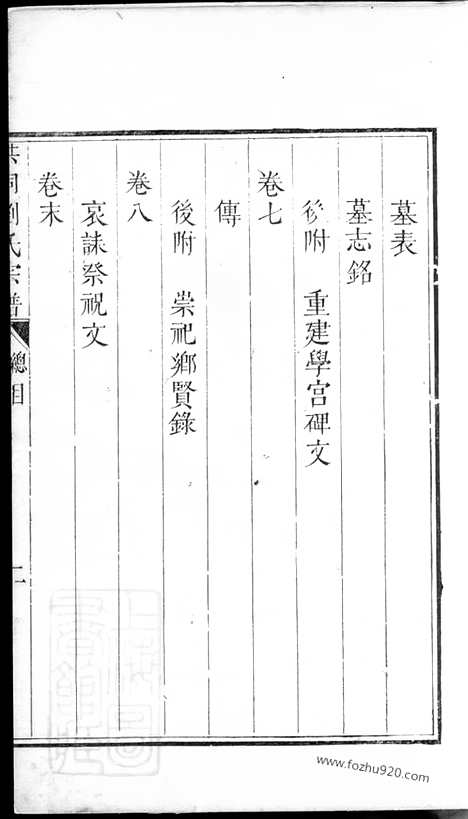 墓表
墓志銘
後附 重建學宮碑文
卷七
傳
後附 崇祀鄉賢錄
卷八
哀誄祭祝文
卷末
洪洞劉氏宗譜 總目 二
www.fozhu920.com